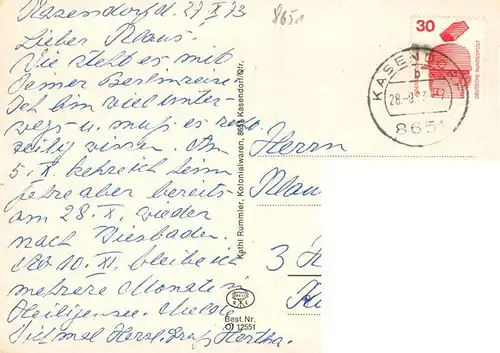 Kasendorf d. 27 X 73
8651
Lieber Klaus.
Wie steht es mit
Deiner Berlinreise.
Ich bin viel unter-
wegs u. muß es recht-
zeitig wissen. Am
5. X. kehre ich heim
fahre aber bereits
am 28. X. wieder
nach Wiesbaden.
Ab 10. XI. bleibe ich
mehrere Monate in
Heiligensee. Melde
Dich mal Herzl. Gruß Hertha.
Kathi Rummler, Kolonialwaren, 8651 Kasendorf/Ofr.
Best. Nr.
O/ 12551
30
DEUTSCHE BUNDESPOST
KASENDORF
b
8651
Herrn
Klau
3